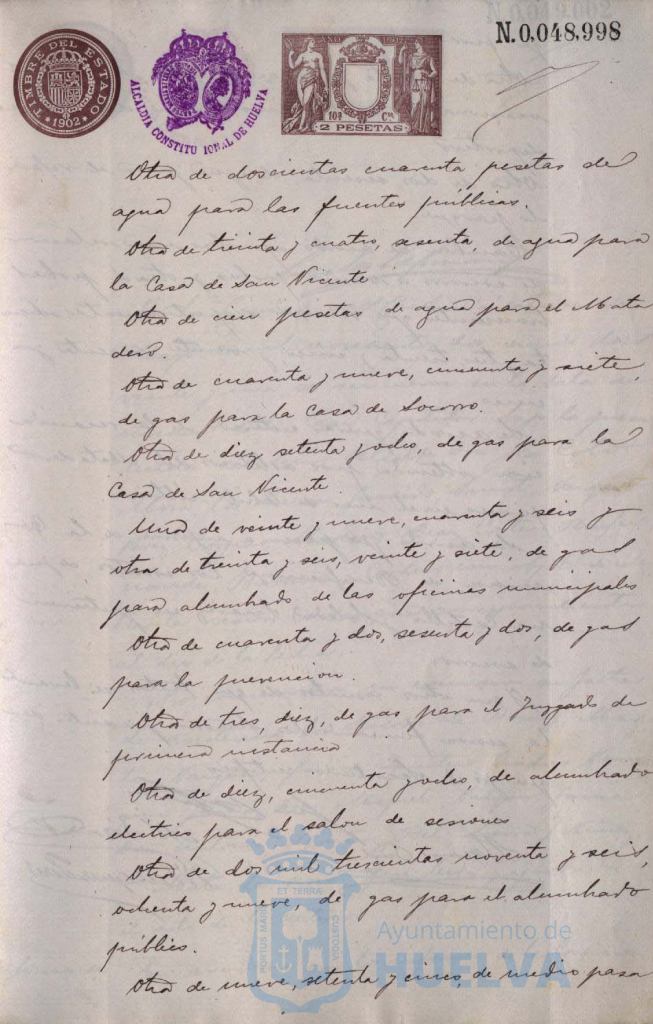 N.0,048,998
TIMBRE DEL ESTADO
1902
ALCALDIA CONSTITUCIONAL DE HUELVA
AÑO
10ª Cse
2 PESETAS
Otra de doscientas cuarenta pesetas de
agua para las fuentes públicas.
Otra de treinta y cuatro, sesenta, de agua para
la Casa de San Vicente
Otra de cien pesetas de agua para el Mata
dero.
Otra de cuarenta y nueve, cincuenta y siete,
de gas para la Casa de Socorro.
Otra de diez setenta y ocho, de gas para la
Casa de San Vicente.
Una de veinte y nueve, cuarenta y seis y
otra de treinta y seis, veinte y siete, de gas
para alumbrado de las oficinas municipales
Otra de cuarenta y dos, sesenta y dos, de gas
para la prevencion.
Otra de tres, diez, de gas para el Juzgado de
primera instancia
Otra de diez, cincuenta y ocho, de alumbrado
electrico para el salon de sesiones
Otra de dos mil trescientas noventa y seis,
ochenta y nueve, de gas para el alumbrado
público.
Otra de nueve, setenta y cinco, de medio pasa
PORTUS MARIS ET TERRÆ CUSTODIA
Ayuntamiento de
HUELVA